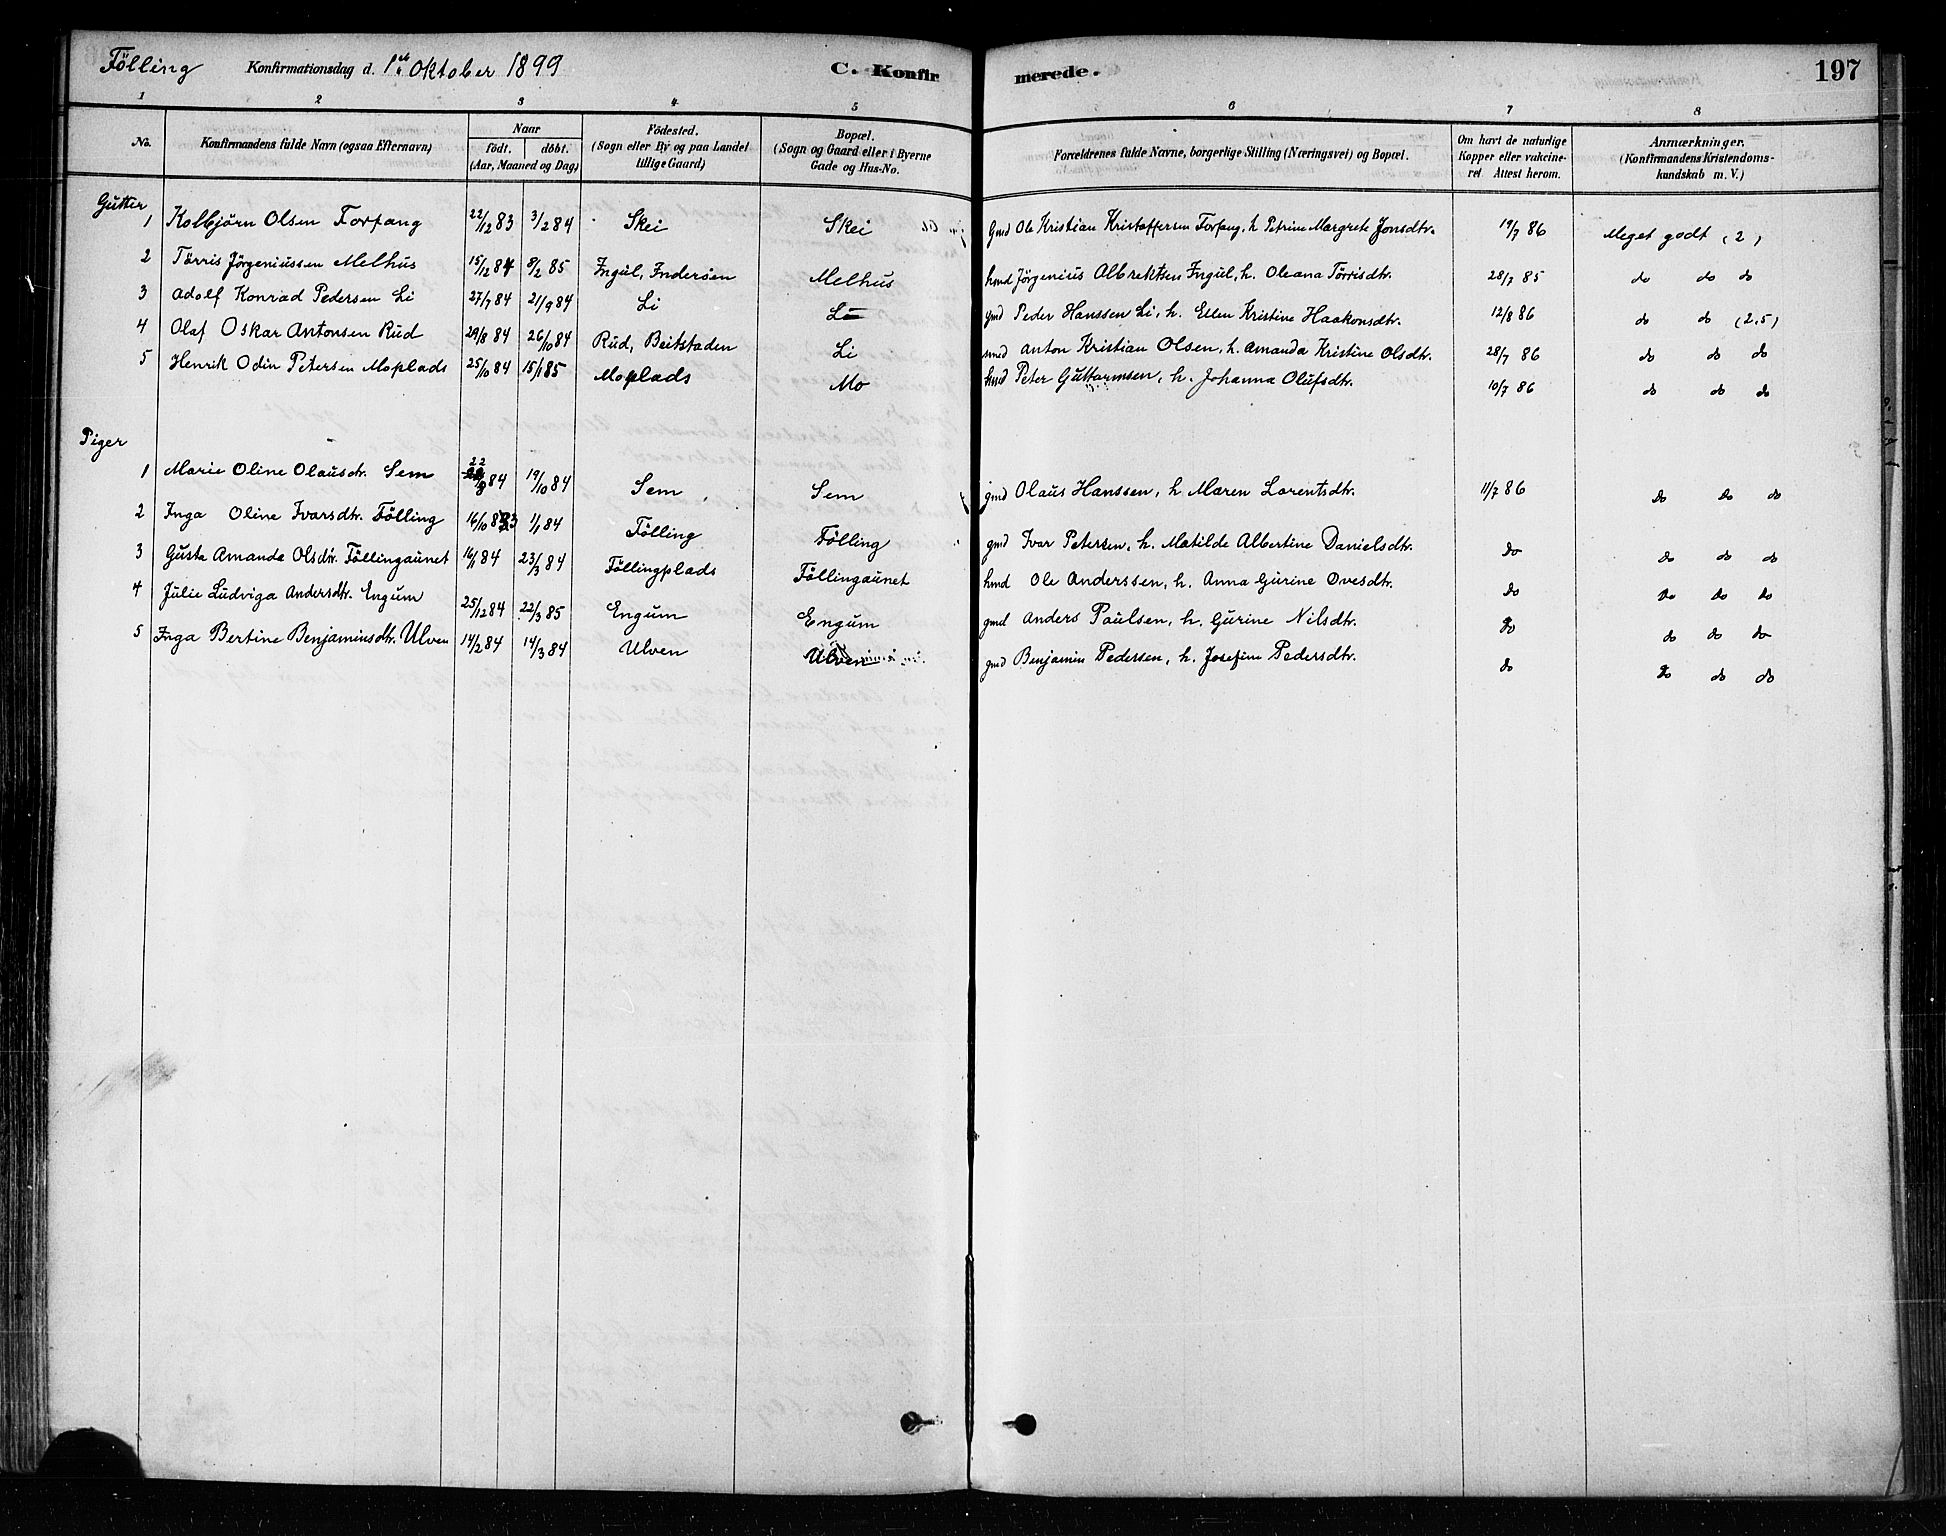 Fölling Konfirmationsdag d. 1ste Oktober 1899 C. Konfirmerede. 197
1 2 3 4 5 6 7 8
No. Konfirmandens fulde Navn (ogsaa Efternavn) Naar födt. döbt. (Aar, Maaned og Dag) Födested. (Sogn eller By og paa Landet tillige Gaard) Bopæl. (Sogn og Gaard eller i Byerne Gade og Hus-No. Forældrenes fulde Navne, borgerlige Stilling (Næringsvei) og Bopæl. Om havt de naturlige Kopper eller vakcineret. Attest herom. Anmærkninger. (Konfirmandens Kristendomskundskab m. V.)
Gutter
1 Kolbjörn Olsen Forfang 22/12 83 3/2 84 Skei Skei Gmd Ole Kristian Kristoffersen Forfang, h. Petrine Margrete Jonsdtr. 19/7 86 Meget godt (2)
2 Törris Jörgeniussen Melhus 15/12 84 8/2 85 Ingul, Inderöen Melhus hmd Jörgenius Albrektsen Ingul, h. Oleana Törrisdtr. 28/7 85 do do do
3 Adolf Konrad Pedersen Li 27/7 84 21/9 84 Li Li gmd Peder Hanssen Li, h. Ellen Kristine Haakonsdtr. 12/8 86 do do (2,5)
4 Olaf Oskar Antonsen Rud 29/8 84 26/10 84 Rud, Beitstaden Li smed Anton Kristian Olsen, h. Amanda Kristine Olsdtr. 28/7 86 do do do
5 Henrik Odin Petersen Moplads 25/10 84 15/1 85 Moplads Mo hmd Peter Guttormsen, h. Johanna Olufsdtr. 10/7 86 do do do
Piger
1 Marie Oline Olausdtr. Sem 22/8 84 19/10 84 Sem Sem gmd Olaus Hanssen, h. Maren Lorentsdtr. 11/7 86 do do do
2 Inga Oline Ivarsdtr. Fölling 16/10 83 1/1 84 Fölling Fölling gmd Ivar Petersen, h. Matilde Albertine Danielsdtr. do do do do
3 Gusta Amanda Olsdtr. Föllingaunet 16/1 84 23/3 84 Föllingplads Föllingaunet hmd Ole Anderssen, h. Anna Gurine Ovesdtr. do do do do
4 Julie Ludviga Andersdtr. Engum 25/12 84 22/3 85 Engum Engum gmd Anders Paulsen, h. Gurine Nilsdtr. do do do do
5 Inga Bertine Benjaminsdtr. Ulven 14/2 84 14/3 84 Ulven Ulven gmd Benjamin Pedersen, h. Josefine Pedersdtr. do do do do